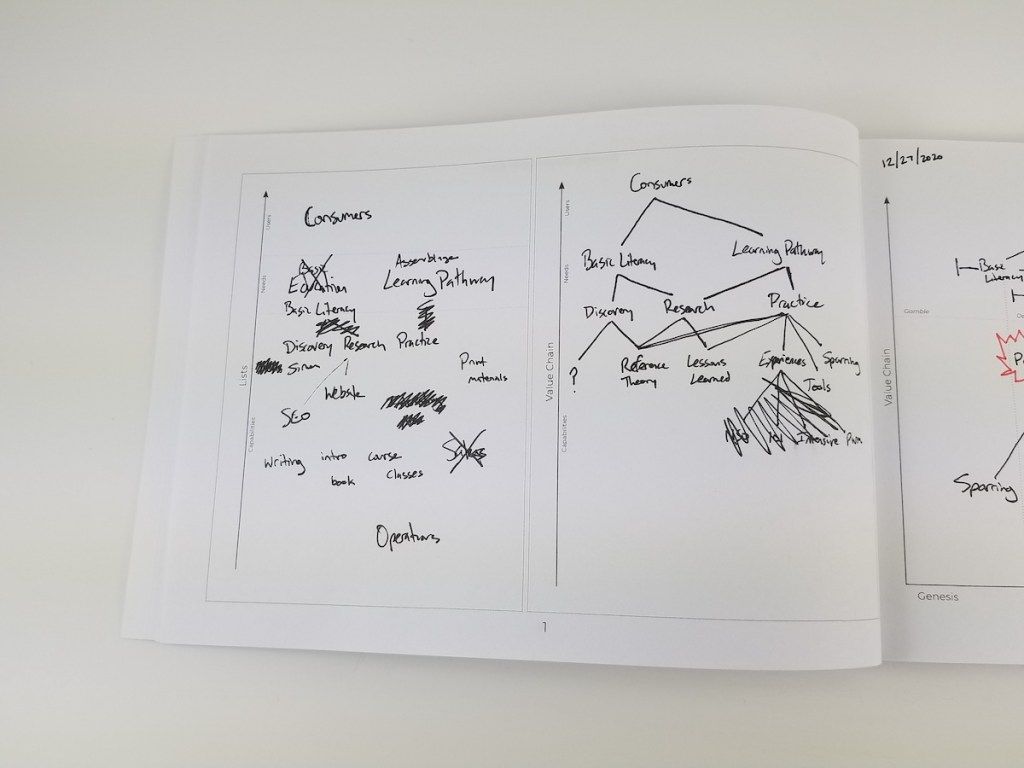 Lists
Users
Needs
Capabilities
Consumers
Basic
Education
Assemblize
Learning Pathway
Basic Literacy
Discovery Research Practice
Simon
Print
materials
Website
SEO
Writing intro course
book classes
Sales
Operations
Value Chain
Users
Needs
Capabilities
Consumers
Basic Literacy
Learning Pathway
Discovery
Research
Practice
?
Reference
Theory
Lessons
Learned
Experiences
Sparring
Tools
Intensive
1
12/27/2020
Value Chain
Base
Literacy
Gamble
P
Sparring
Genesis